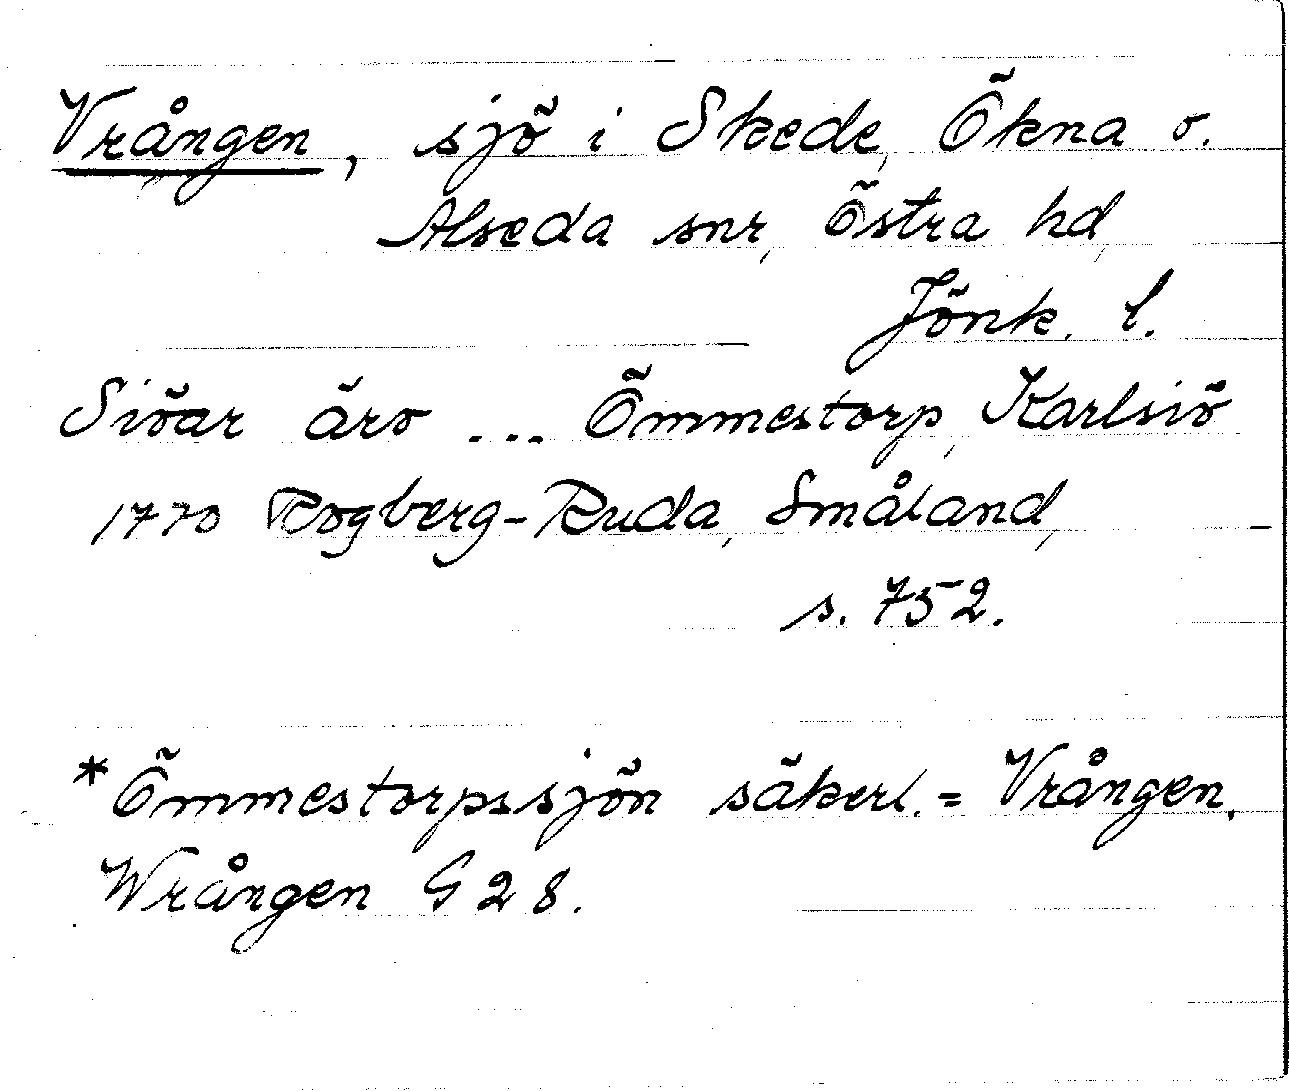 Vrången, sjö i Skede, Ökna o.
Alseda snr, Östra hd,
Jönk. l.
Siöar äro ... Ömmestorp, Karlsiö
1770 Rogberg-Ruda, Småland,
s. 752.
*Ömmestorpssjön säkerl. = Vrången.
Wrången G 28.